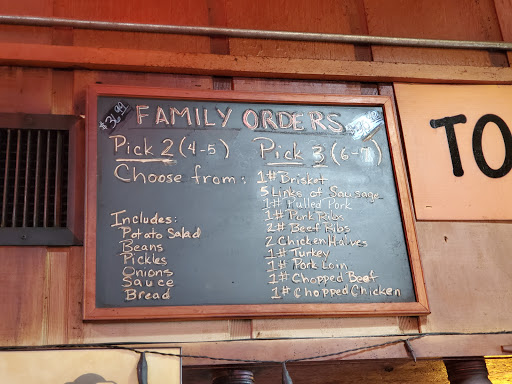 $36.99 FAMILY ORDERS
Pick 2 (4-5) Pick 3 (6-7)
Choose from:
1# Brisket
5 Links of Sausage
1# Pulled Pork
1# Pork Ribs
2# Beef Ribs
2 Chicken Halves
1# Turkey
1# Pork Loin
1# Chopped Beef
1# Chopped Chicken
Includes:
Potato Salad
Beans
Pickles
Onions
Sauce
Bread
TO